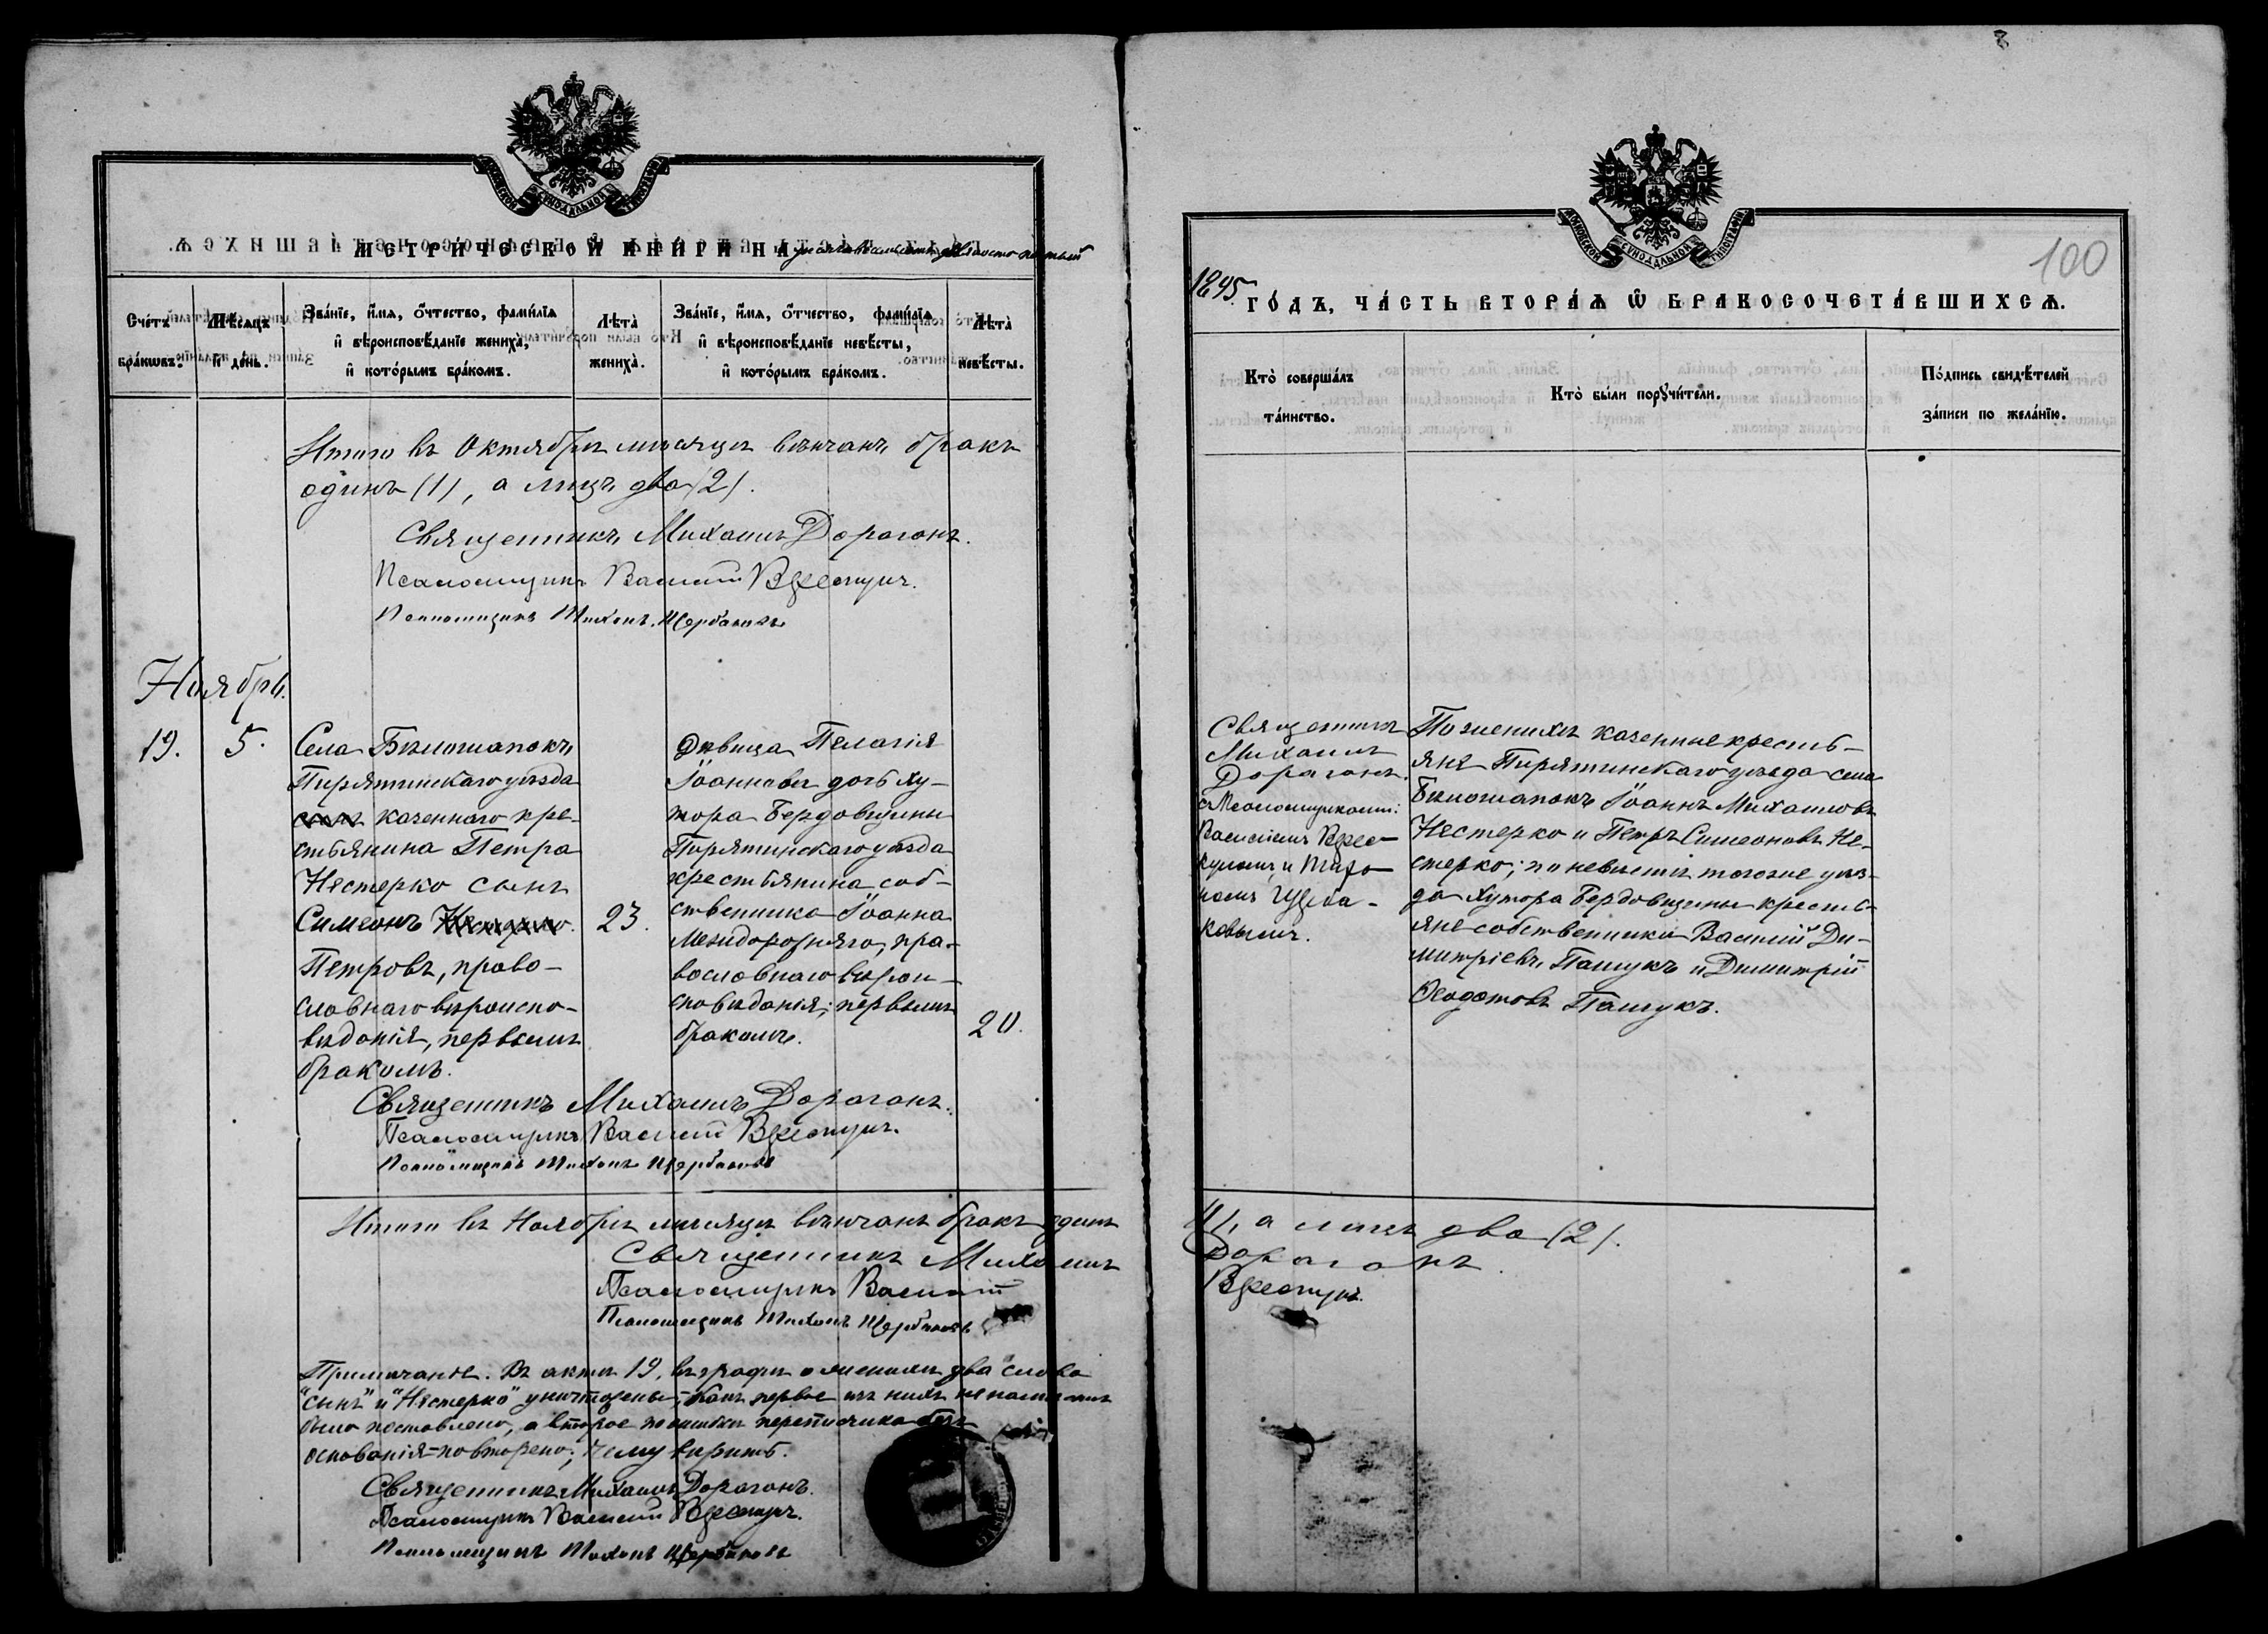 МЕТРИЧЕСКОЙ КНИГИ НА тысяча восемьсотъ девяносто пятый
Счетъ браковъ.
Мѣсяцъ и день.
Званіе, имя, отчество, фамилія
и вѣроисповѣданіе жениха,
и которымъ бракомъ.
Лѣта
жениха.
Званіе, имя, отчество, фамилія
и вѣроисповѣданіе невѣсты,
и которымъ бракомъ.
Лѣта
невѣсты.
Итого въ Октябрѣ мѣсяцѣ вѣнчанъ бракъ
одинъ (1), а лицъ два (2).
Священникъ Михаилъ Дорагонъ.
Псаломщикъ Василій
Псаломщикъ Тихонъ Щербаковъ
Ноябрь.
19. 5.
Села Бѣлошапокъ
Пирятинскаго уѣзда
сынъ казеннаго кре-
стьянина Петра
Нестерко сынъ
Симеонъ Нестерко. 23.
Петровъ, право-
славнаго вѣроиспо-
вѣданія, первымъ
бракомъ.
Дѣвица Пелагія
Іоаннова дочь ху-
тора Бердовщины
Пирятинскаго уѣзда
крестьянина соб-
ственника Іоанна
Межидорожняго, пра-
вославнаго вѣрои-
сповѣданія; первымъ
бракомъ. 20.
Священникъ Михаилъ Дорагонъ.
Псаломщикъ Василій
Псаломщикъ Тихонъ Щербаковъ
Итого въ Ноябрѣ мѣсяцѣ вѣнчанъ бракъ одинъ
Священникъ Михаилъ
Псаломщикъ Василій
Псаломщикъ Тихонъ Щербаковъ
Примѣчаніе. Въ актѣ 19, въ графѣ о женихѣ два слова
"сынъ" и "Нестерко" уничтожены, какъ первое изъ нихъ не на мѣстѣ
было поставлено, а второе по ошибкѣ переписчика безъ
основанія повторено; чему вѣрить.
Священникъ Михаилъ Дорагонъ.
Псаломщикъ Василій
Псаломщикъ Тихонъ Щербаковъ
100
1895 ГОДЪ, ЧАСТЬ ВТОРАЯ Ѡ БРАКОСОЧЕТАВШИХСЯ.
Кто совершалъ
таинство.
Кто были поручители.
Подпись свидѣтелей
записи по желанію.
Священникъ
Михаилъ
Дорагонъ
съ Псаломщиками:
Василіемъ
и Тихо-
номъ Щерба-
ковымъ.
По женихѣ казенные кресть-
яне Пирятинскаго уѣзда села
Бѣлошапокъ Іоаннъ Михаиловъ
Нестерко и Петръ Симеоновъ Не-
стерко; по невѣстѣ тогоже уѣз-
да хутора Бердовщины кресть-
яне собственники Василій Ди-
митріевъ Пащукъ и Димитрій
Ѳеодотовъ Пащукъ.
(1), а лицъ два (2).
Дорагонъ